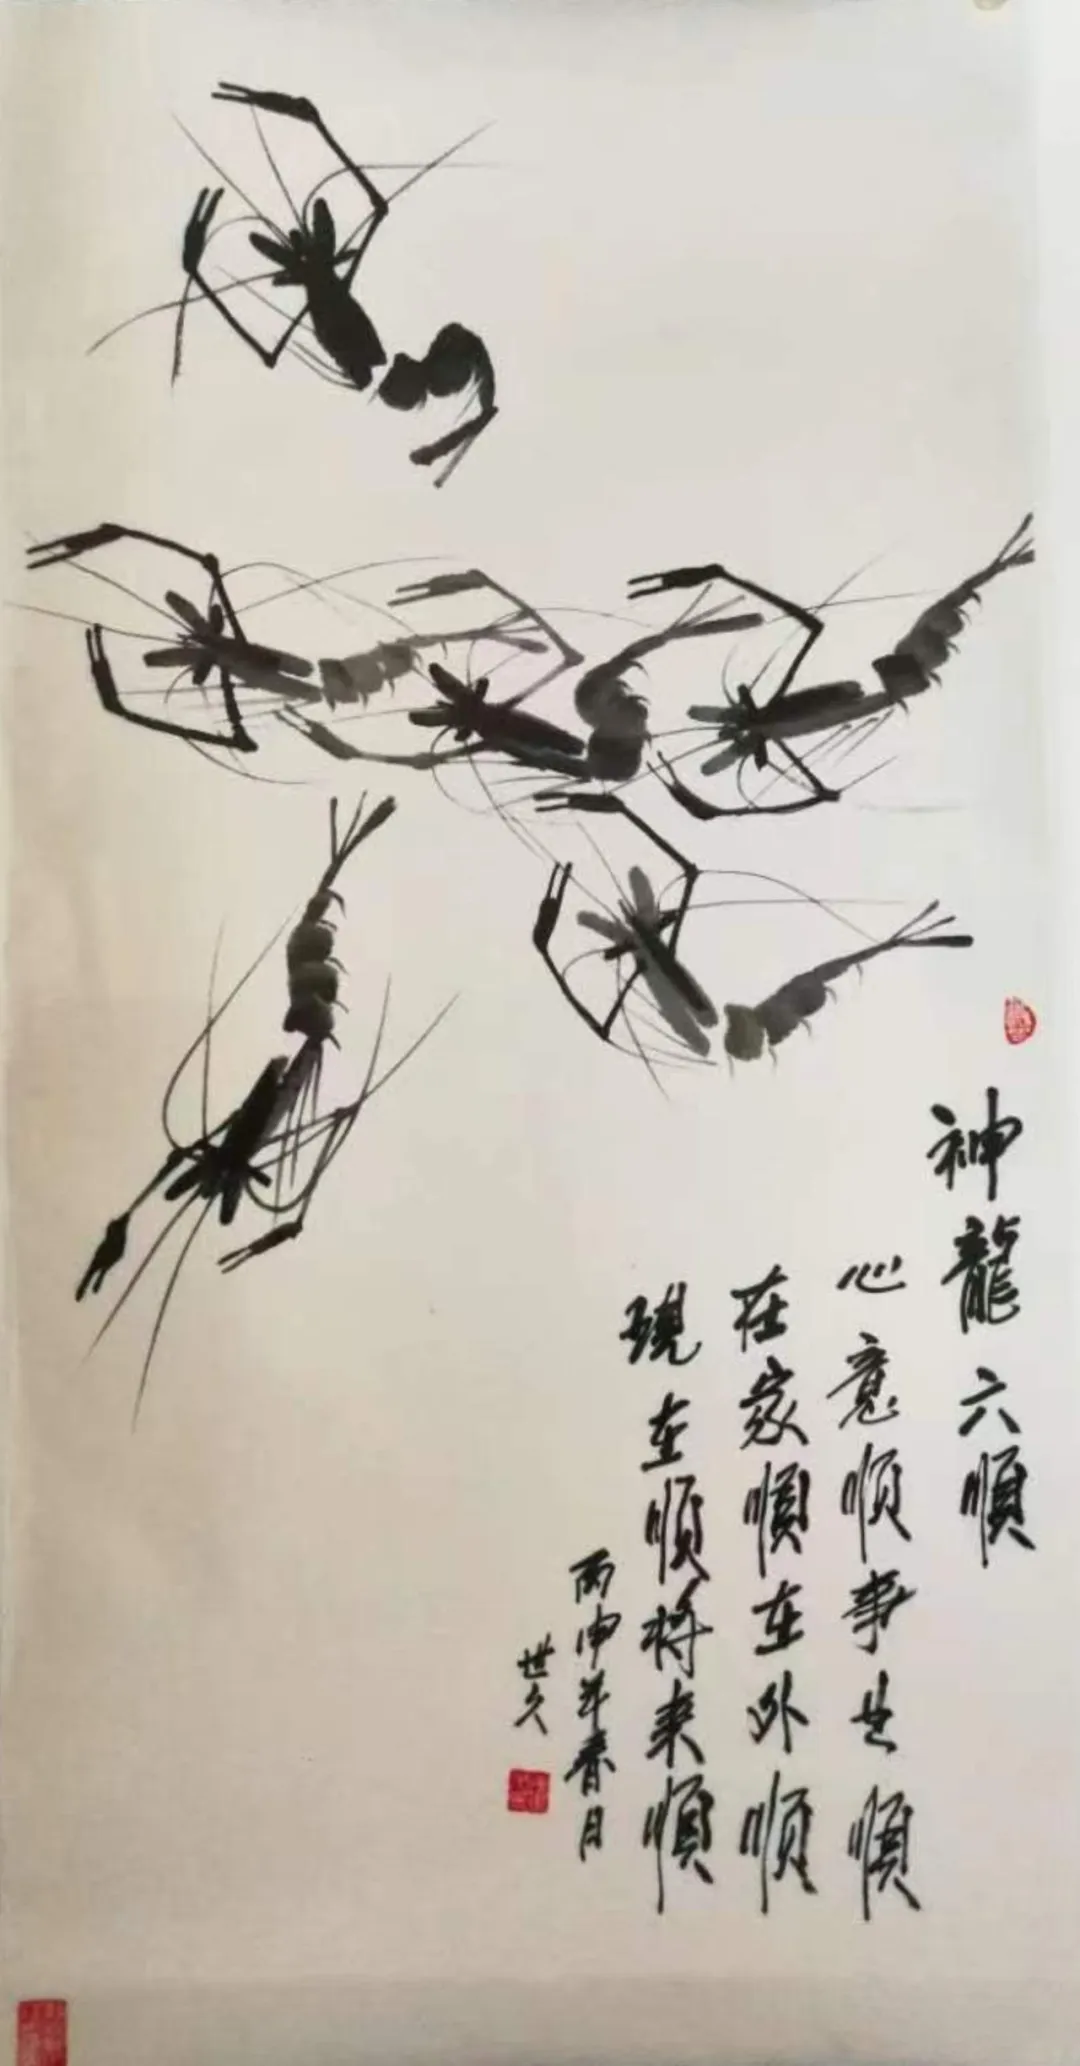 神龍六順
心意順事出順
在家順在外順
現在順将来順
丙申年春月
世久